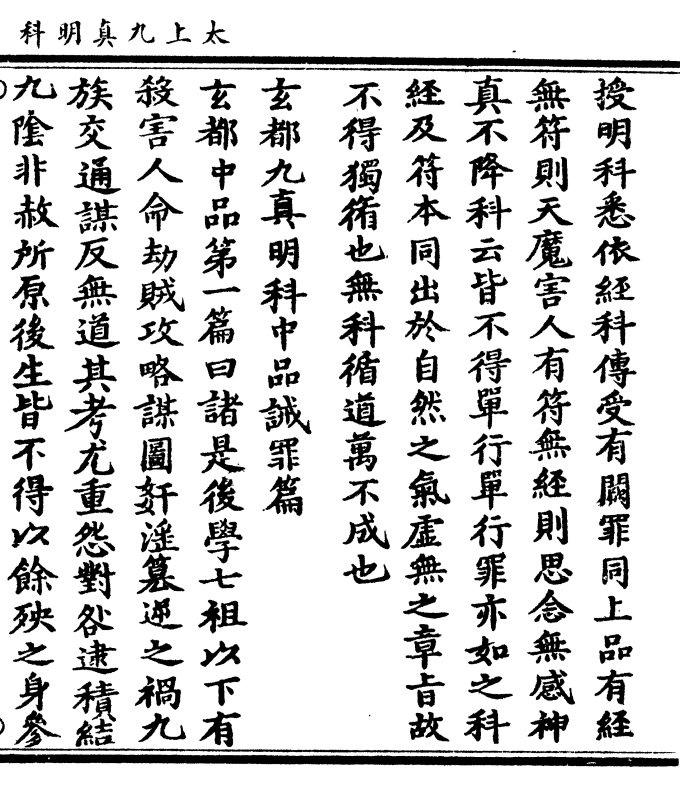 太上九真明科
授明科悉依經科傳受有闕罪同上品有經
無符則天魔害人有符無經則思念無感神
真不降科云皆不得單行單行罪亦如之科
經及符本同出於自然之氣虛無之章旨故
不得獨脩也無科循道萬不成也
玄都九真明科中品誡罪篇
玄都中品第一篇曰諸是後學七祖以下有
殺害人命劫賊攻略謀圖奸淫篡逆之禍九
族交通謀反無道其考尤重怨對咎逮積結
九陰非赦所原後生皆不得以餘殃之身參